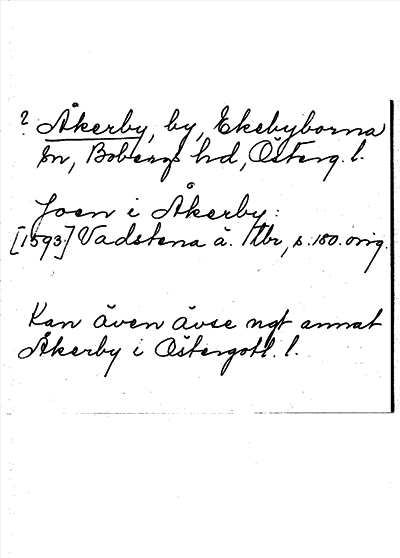 ? Åkerby, by, Ekebyborna
sn, Bobergs hd, Österg. l.
Joen i Åkerby:
[1593] Vadstena ä. Tbr, s. 180. orig.
Kan även avse ngt annat
Åkerby i Östergötl. l.